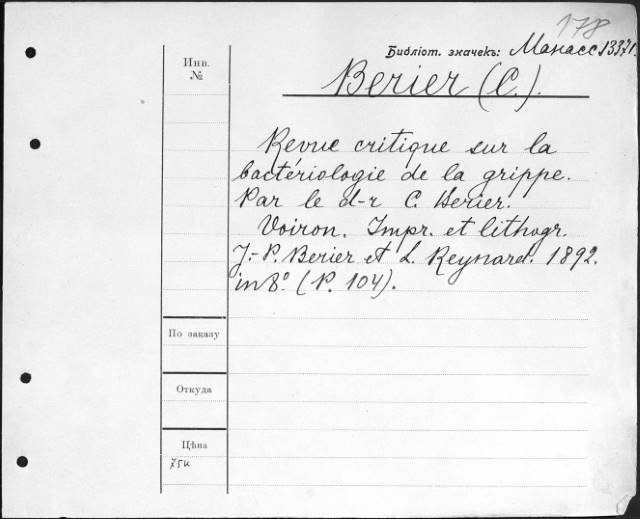 178
Библіот. значекъ: Манасс 13371.
Инв.
№
Berier (C.).
Revue critique sur la
bactériologie de la grippe.
Par le d-r C. Berier.
Voiron. Impr. et lithogr.
J.-P. Berier et L. Reynard. 1892.
in 8º. (P. 104).
По заказу
Откуда
Цѣна
75к